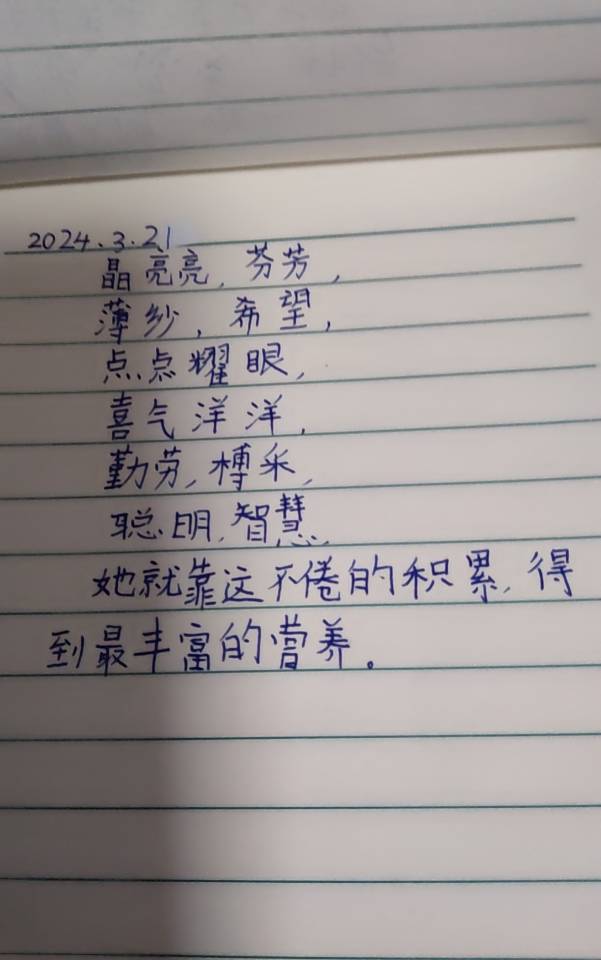 2024.3.21
晶亮亮,芬芳,
薄纱,希望,
点点耀眼,
喜气洋洋,
勤劳,榑采,
聪明,智慧,
她就靠这不倦的积累,得
到最丰富的营养。